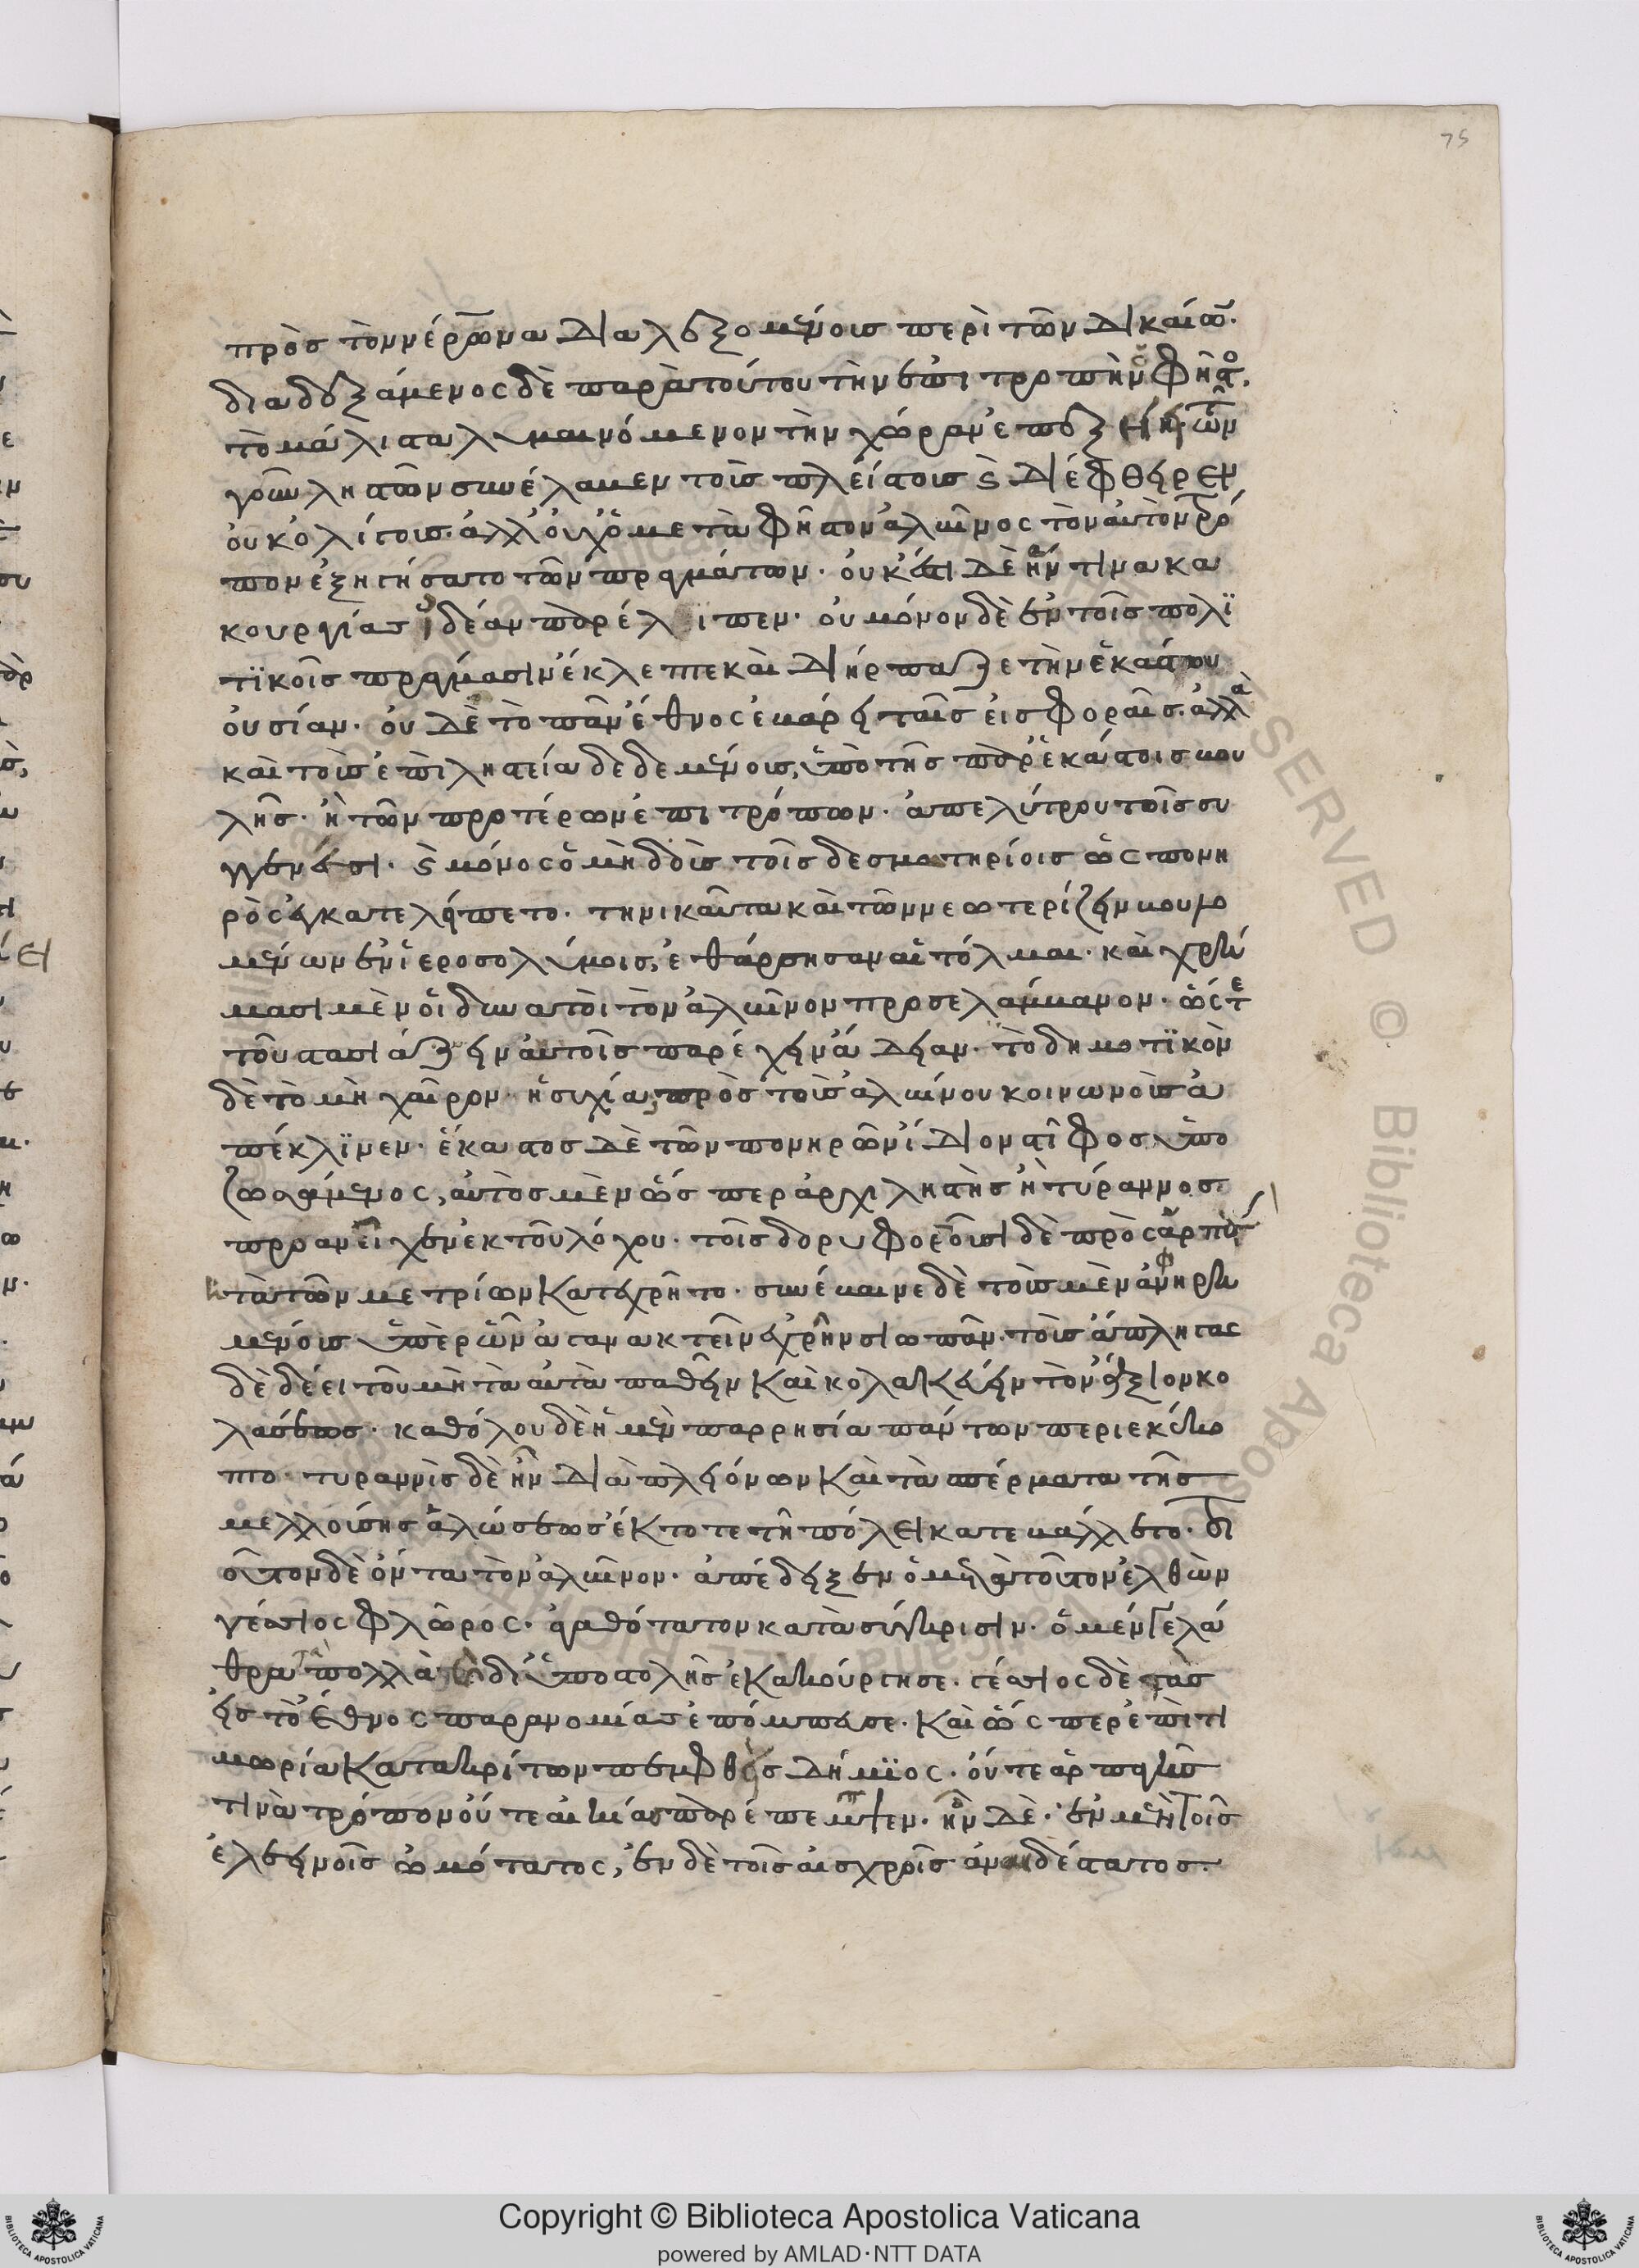 75
πρὸς τὸν νέρωνα διαλεξομένοις περὶ τῶν δικαίω̅.
διαδεξάμενος δὲ παρὰ τούτου τὴν ἐπιτροπὴν ὁ φῆστος,
τὸ μάλιστα λυμαινόμενον τὴν χώραν ἐπεξῄει· τῶν
γοῦν ληστῶν συνέλαβεν τοὺς πλείστους καὶ διέφθειρεν
οὐκ ὀλίγους. ἀλλ' οὐχ ὁ μετὰ φῆστον ἀλβῖνος τὸν αὐτὸν τρό
πον ἐξηγήσατο τῶν πραγμάτων. οὐκ ἔστι δὲ ἣν τινα κα
κουργίας ἰδέαν παρέλιπεν. οὐ μόνον δὲ ἐν τοῖς πολϊ
τϊκοῖς πράγμασιν ἔκλεπτε καὶ διήρπαζε τὴν ἑκάστου
οὐσίαν. οὐδὲ τὸ πᾶν ἔθνος ἐβάρει ταῖς εἰσφοραῖς. ἀλλὰ
καὶ τοὺς ἐπὶ ληστεία δεδεμένους, ὑπὸ τῆς παρ' ἑκάστοις βου
λῆς. ἢ τῶν προτέρων ἐπιτρόπων. ἀπελύτρου τοῖς συ
γγενέσι. καὶ μόνος ὁ μὴ δοὺς τοῖς δεσμωτηρίοις ὡς πονη
ρὸς ἐγκατελείπετο. τηνικαῦτα καὶ τῶν νεωτερίζειν βουλο
μένων ἐν ἱεροσολύμοις, ἐθάρσησαν αἱ τόλμαι. καὶ χρή
μασι μὲν οἱ δυνατοὶ τὸν ἀλβῖνον προσελάμβανον. ὥστε
τοῦ στασιάζειν αὐτοῖς παρέχειν ἄδειαν. τὸ δημοτϊκὸν
δὲ τὸ μὴ χαῖρον ἡσυχία, πρὸς τοὺς ἀλβίνου κοινωνοὺς ἀ
πέκλϊνεν. ἕκαστος δὲ τῶν πονηρῶν ἴδιον στῖφος ὑπο
ζωσάμενος, αὐτὸς μὲν ὥσπερ ἀρχιληστὴς ἢ τύραννος
προανεῖχεν ἐκ τοῦ λόχου. τοῖς δορυφοροῦσι δὲ πρὸς ἁρπαγὰς
τῶν μετρίων κατεχρῆτο. συνέβαινε δὲ τοὺς μὲν ἀφηρη
μένους ὑπὲρ ὧν ἀγανακτεῖν ἐχρῆν σιωπᾶν. τοὺς ἄπληγας
δὲ δέει τοῦ μὴ τὰ αὐτὰ παθεῖν καὶ κολακεύειν τὸν ἄξιον κο
λάσεως. καθόλου δὲ ἡ μὲν παρρησία πάντων περιεκέκο
πτο. τυραννὶς δὲ ἦν διὰ πλειόνων καὶ τὰ σπέρματα τῆς
μελλούσης ἁλώσεως ἔκτοτε τῇ πόλει κατεβάλλετο. τοι
οῦτον δὲ ὄντα τὸν ἀλβῖνον. ἀπέδειξεν ὁ μετὰ τοῦτον ἐλθὼν
γέσσιος φλῶρος. ἀγαθότατον κατὰ σύγκρισιν. ὁ μέν γε λά
θρα τὰ πολλὰ καὶ δι' ὑποστολῆς ἐκακούργησε. γέσσιος δὲ τὰς
εἰς τὸ ἔθνος παρανομίας ἐπόμπευσε. καὶ ὥσπερ ἐπὶ τι
μωρία κατακρίτων πεμφθεὶς δήμϊος. οὔτε ἁρπαγῆς
τινὰ τρόπον οὔτε αἰκίας παρέπεμψεν. ἦν δὲ. ἐν μὲν τοῖς
ἐλεεινοῖς ὠμότατος, ἐν δὲ τοῖς αἰσχροῖς ἀναιδέστατος.
RESERVED © Biblioteca Apostolica Vaticana
Copyright © Biblioteca Apostolica Vaticana
powered by AMLAD·NTT DATA